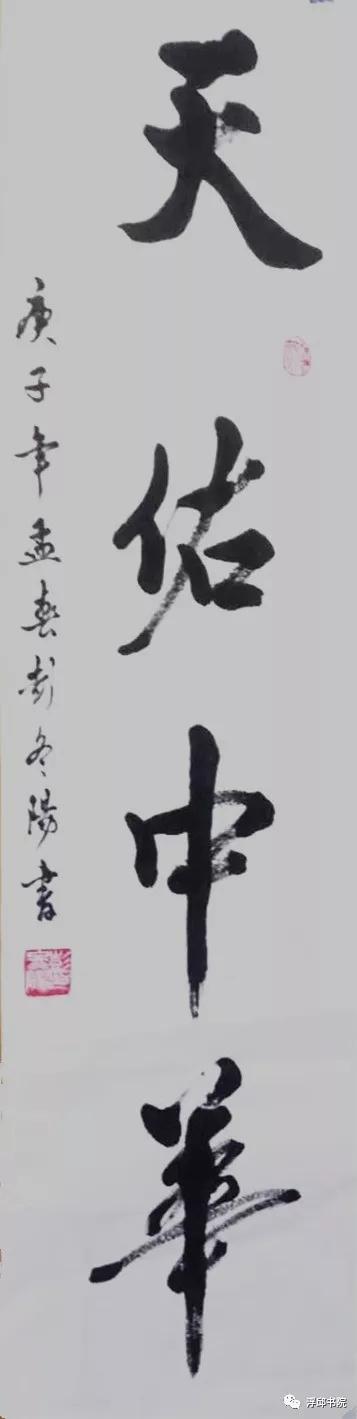 天佑中華
庚子年孟春彭冬陽書
浮邱书院